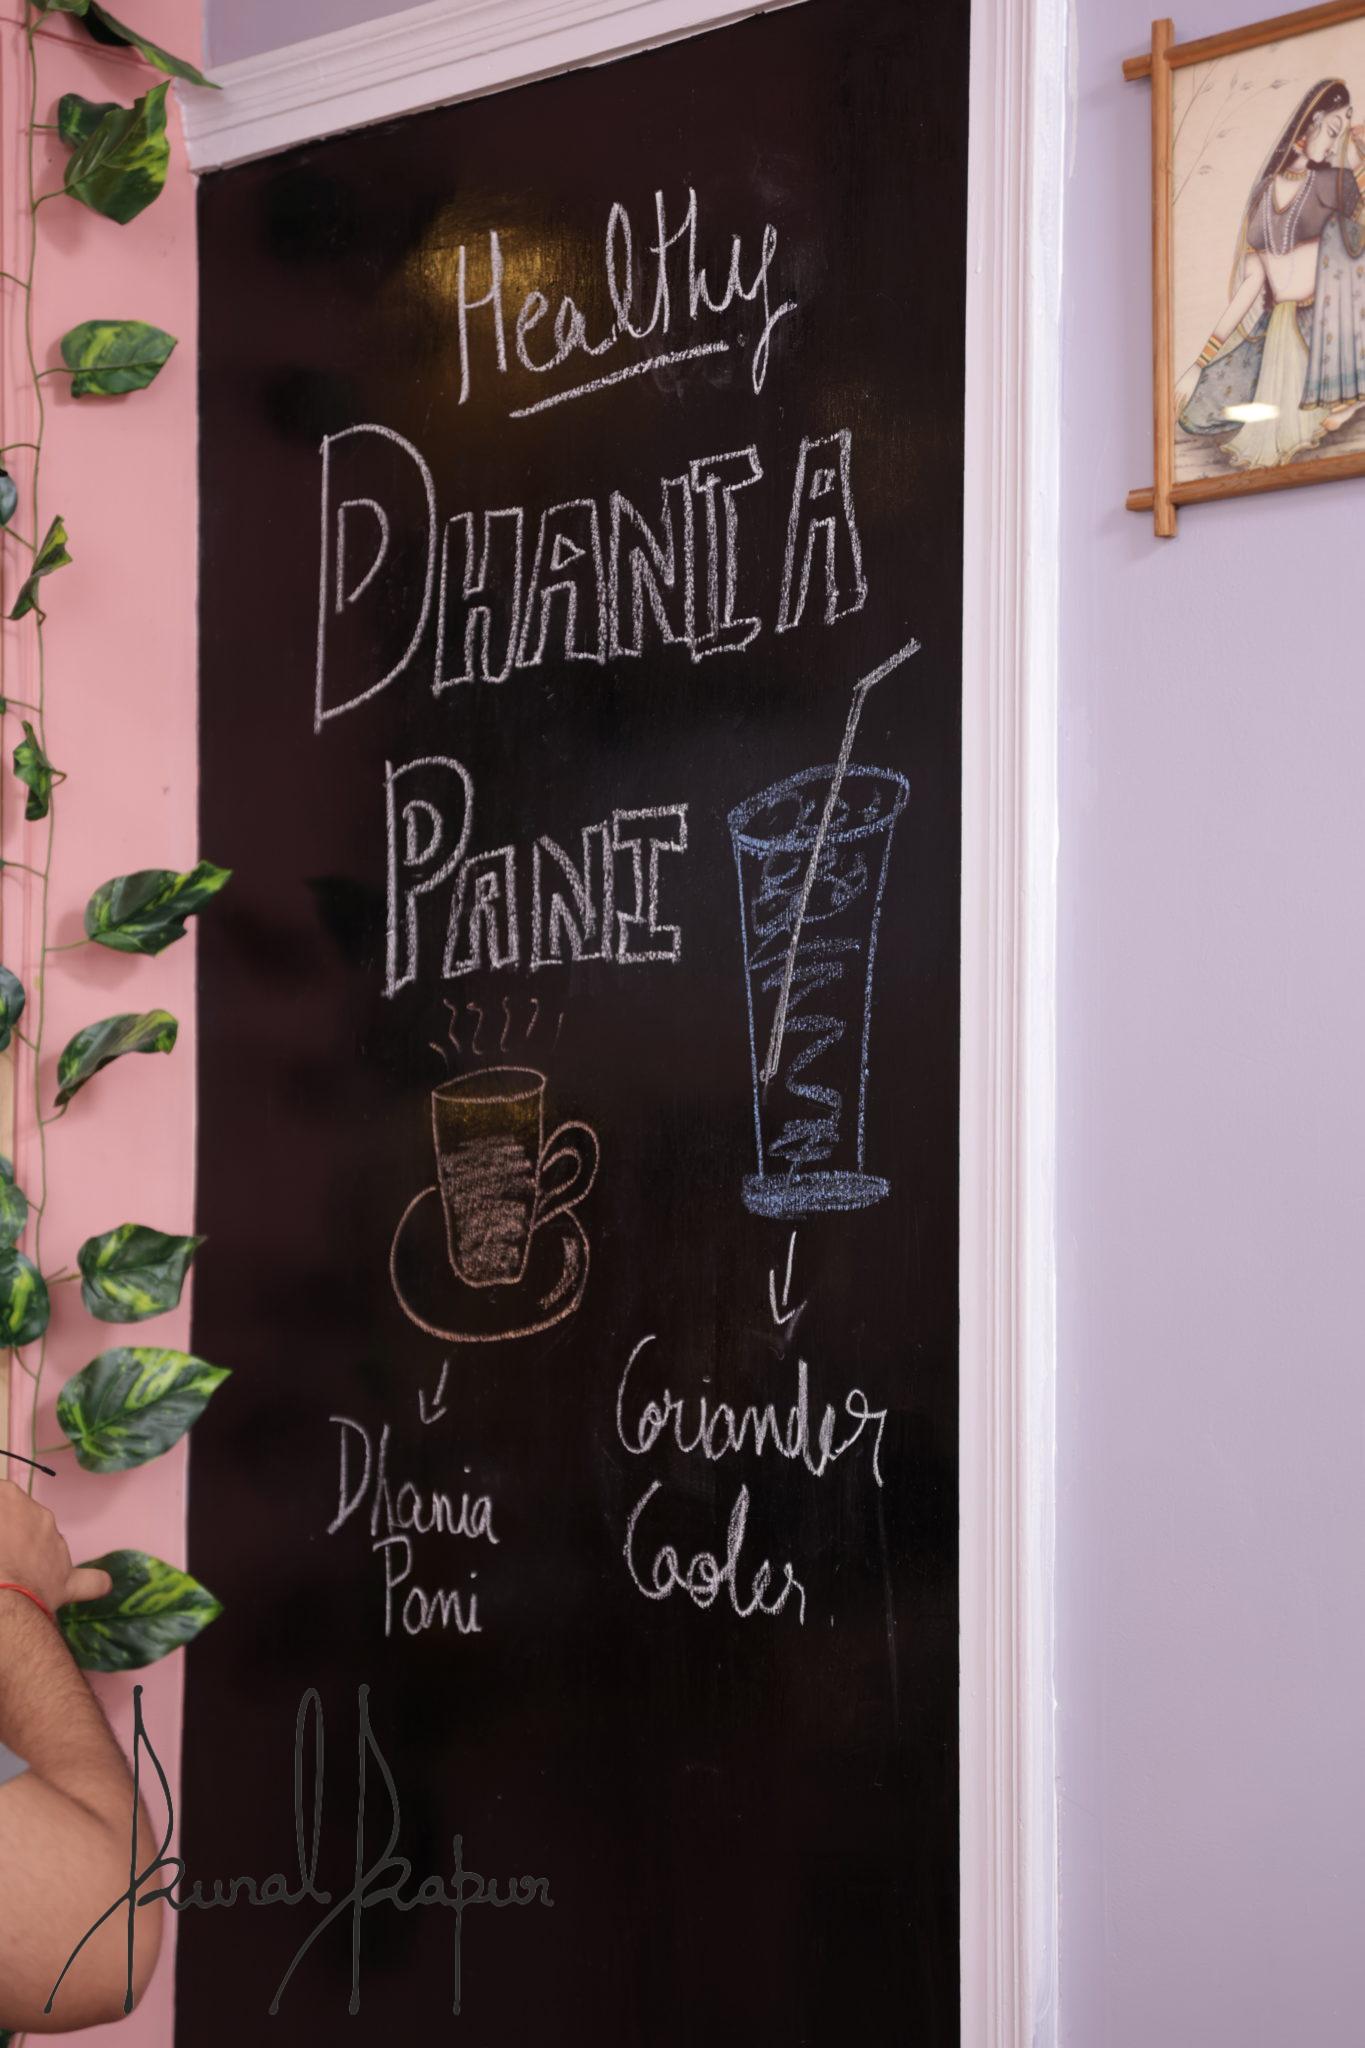 Healthy
DHANIA
PANI
Dhania
Pani
Coriander
Cooler
Kunal Kapur